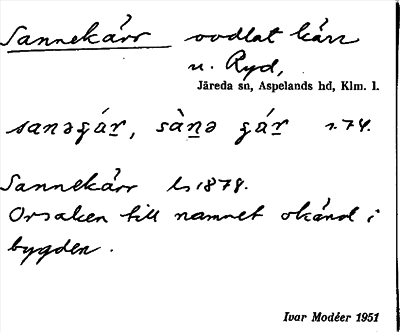 Sannekärr oodlat kärr
u. Ryd,
Järeda sn, Aspelands hd, Klm. l.
sanəgár, sànə gár s. 74.
Sannekärr ls 1878.
Orsaken till namnet okänd i
bygden.
Ivar Modéer 1951